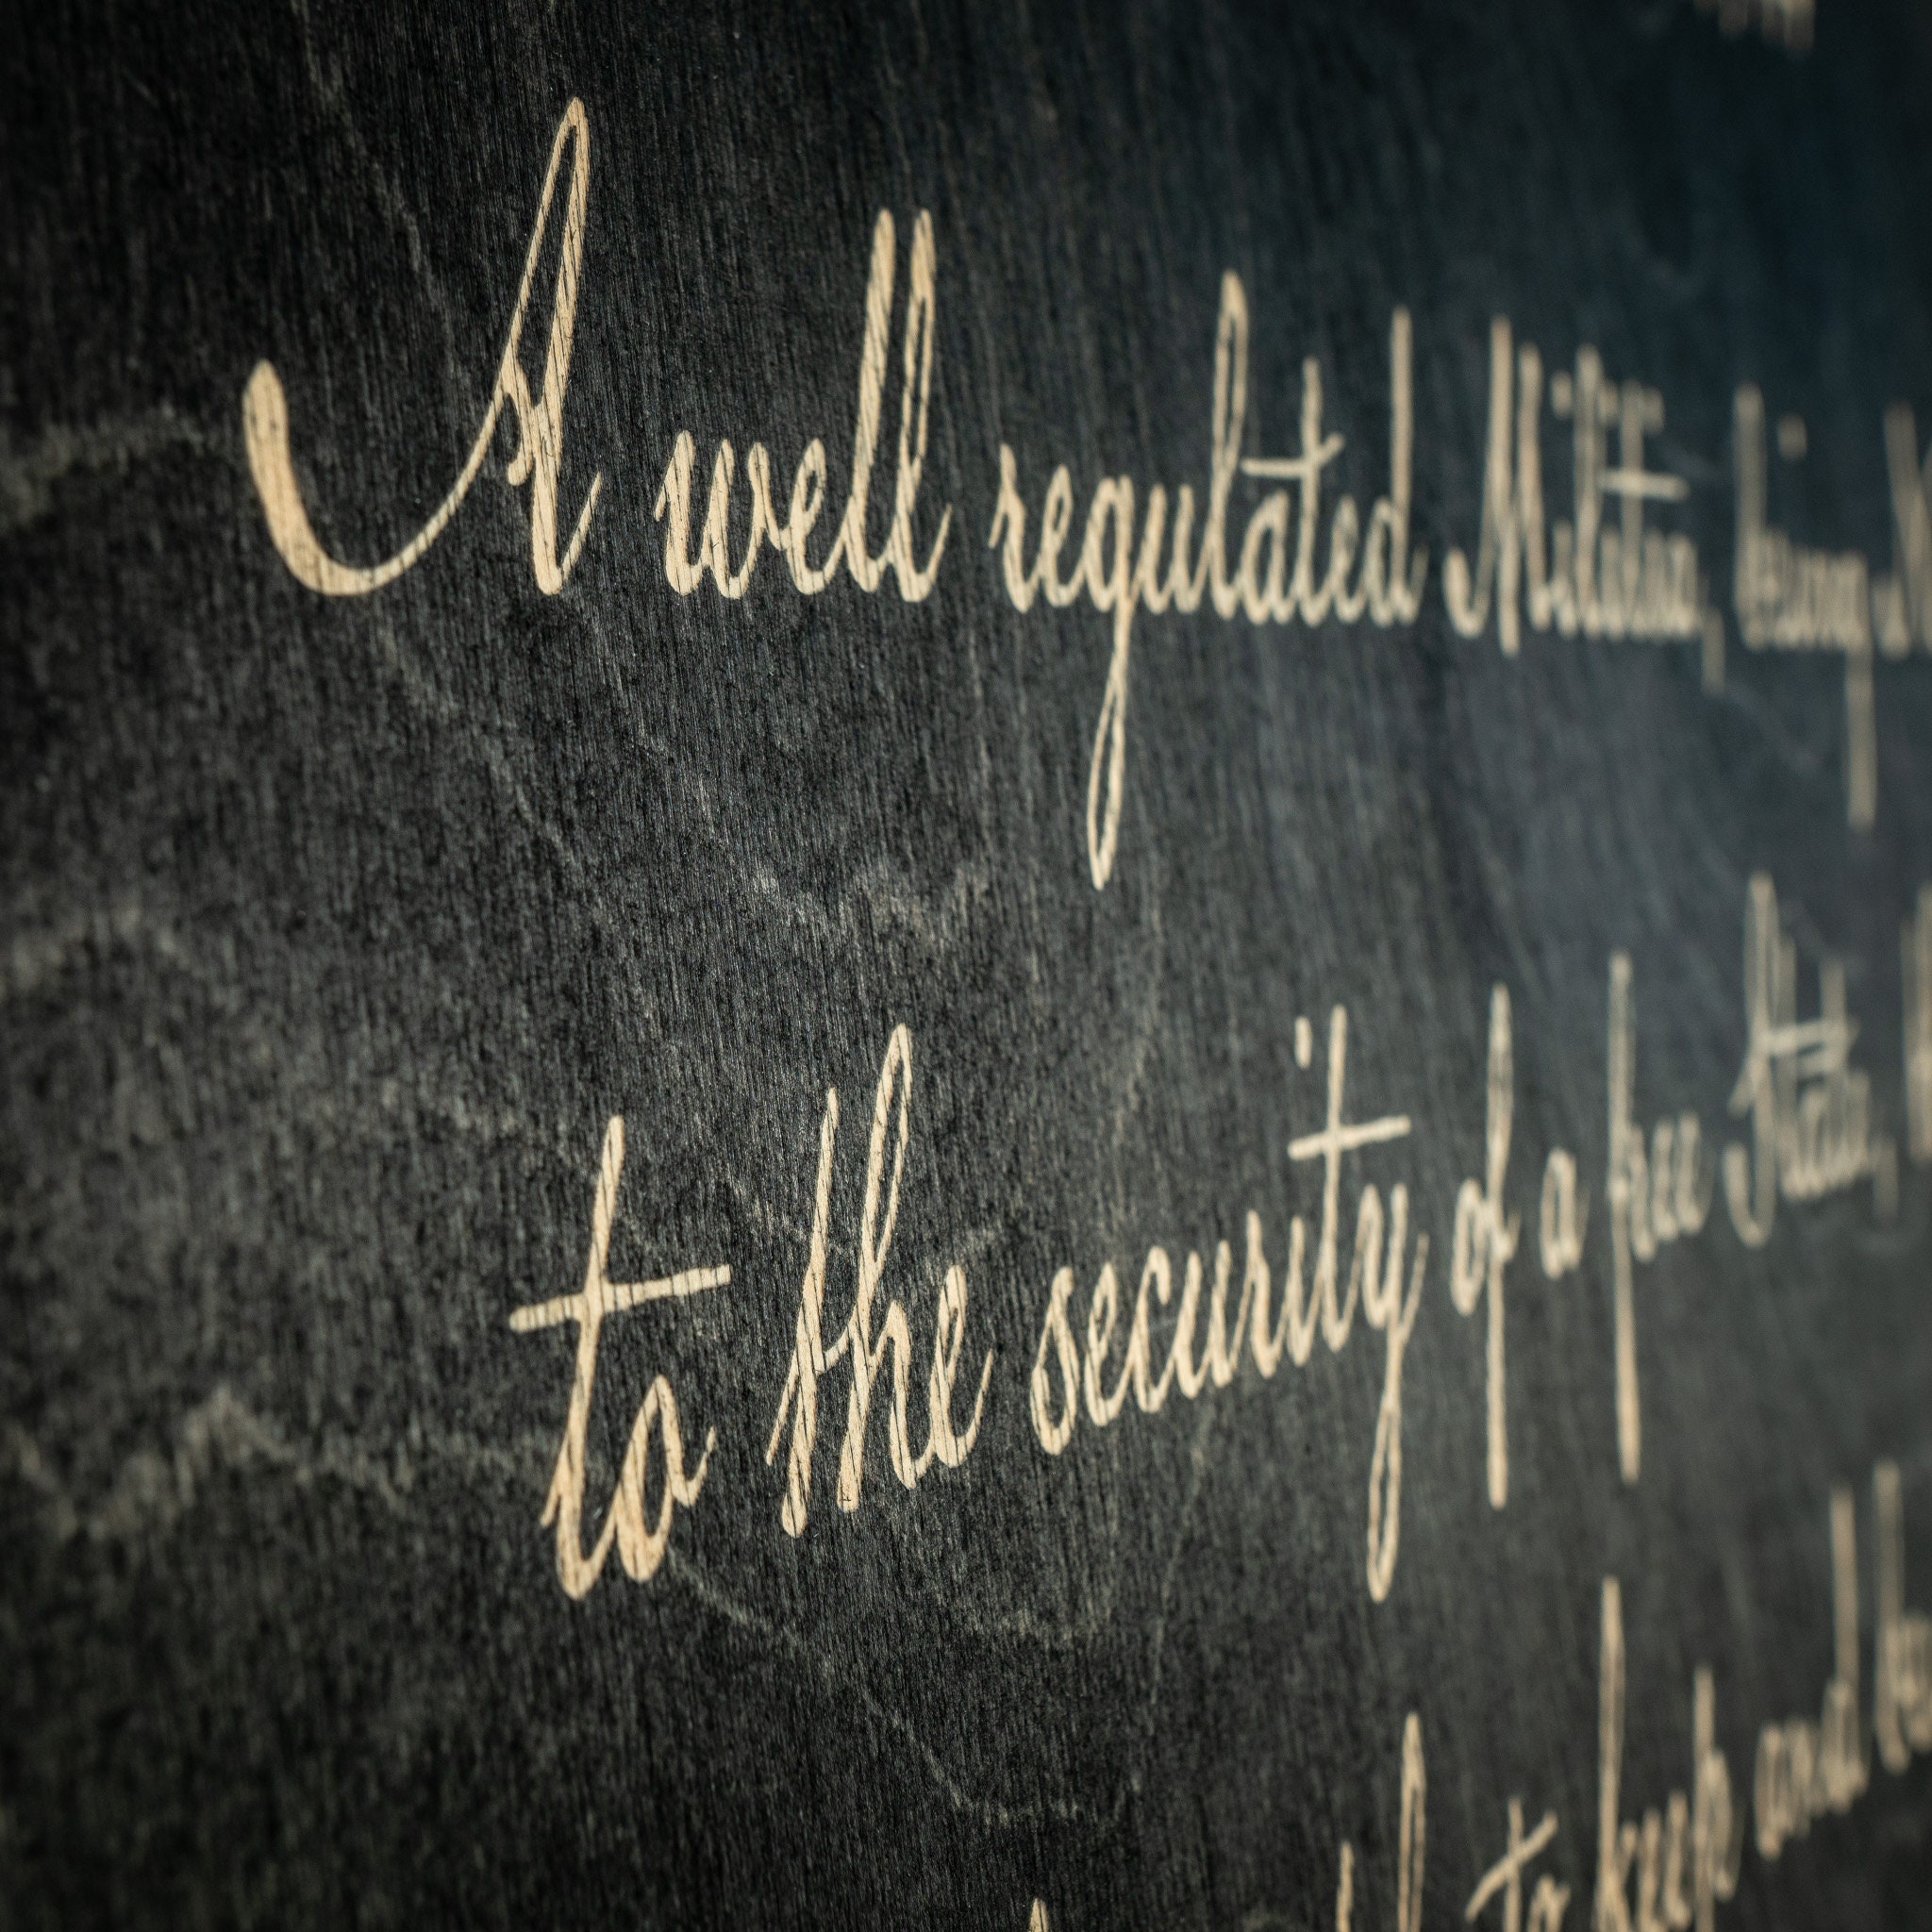 A well regulated Militia, being
to the security of a free State,
to keep and